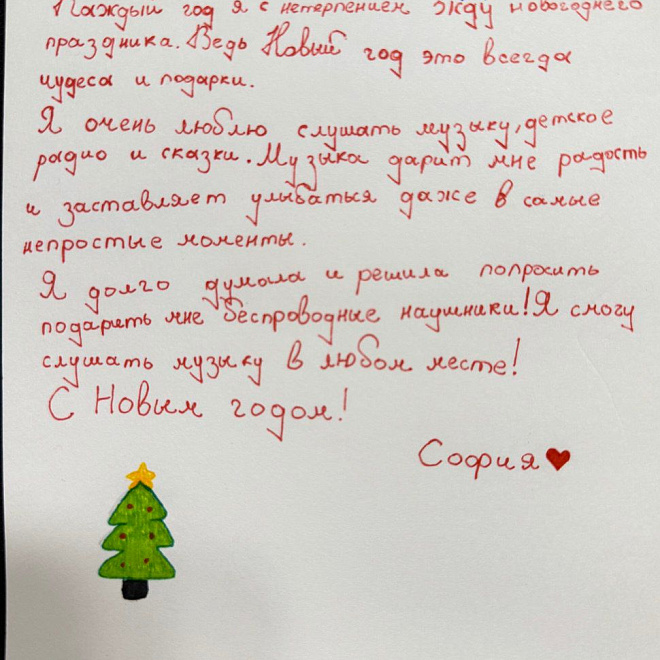 Каждый год я с нетерпением жду новогоднего
праздника. Ведь Новый год это всегда
чудеса и подарки.
Я очень люблю слушать музыку, детское
радио и сказки. Музыка дарит мне радость
и заставляет улыбаться даже в самые
непростые моменты.
Я долго думала и решила попросить
подарить мне беспроводные наушники! Я смогу
слушать музыку в любом месте!
С Новым годом!
София